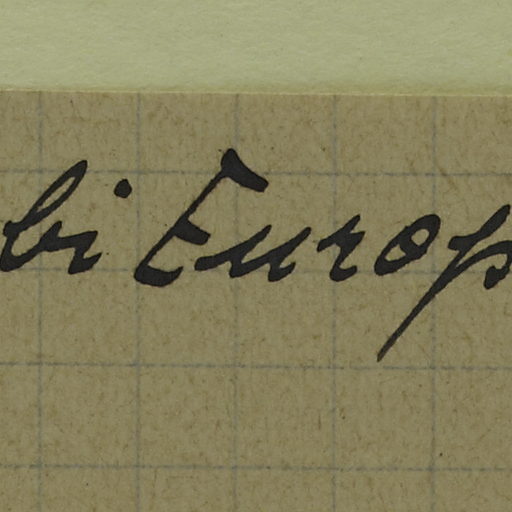 bi Europ